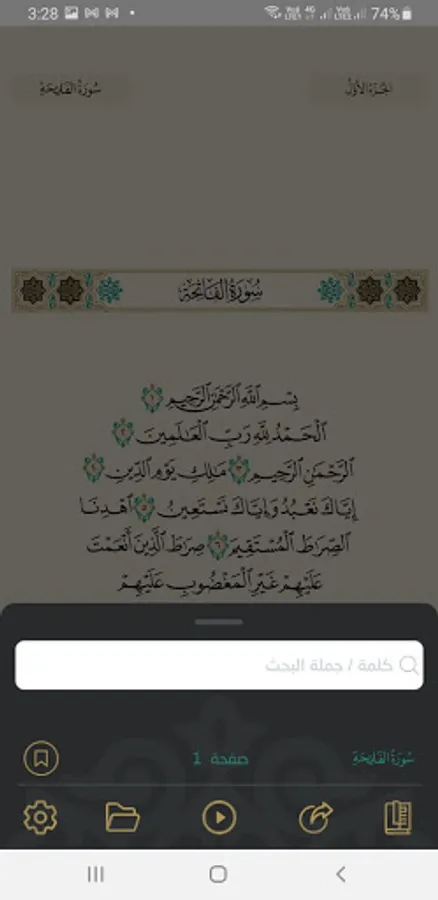 3:28 74%
الجزء الأول
سورة الفاتحة
سورة الفاتحة
بِسْمِ ٱللَّهِ ٱلرَّحْمَٰنِ ٱلرَّحِيمِ ١
ٱلْحَمْدُ لِلَّهِ رَبِّ ٱلْعَٰلَمِينَ ٢
ٱلرَّحْمَٰنِ ٱلرَّحِيمِ ٣ مَٰلِكِ يَوْمِ ٱلدِّينِ ٤
إِيَّاكَ نَعْبُدُ وَإِيَّاكَ نَسْتَعِينُ ٥ ٱهْدِنَا
ٱلصِّرَٰطَ ٱلْمُسْتَقِيمَ ٦ صِرَٰطَ ٱلَّذِينَ أَنْعَمْتَ
عَلَيْهِمْ غَيْرِ ٱلْمَغْضُوبِ عَلَيْهِمْ
كلمة / جملة البحث
سورة الفاتحة
صفحة 1